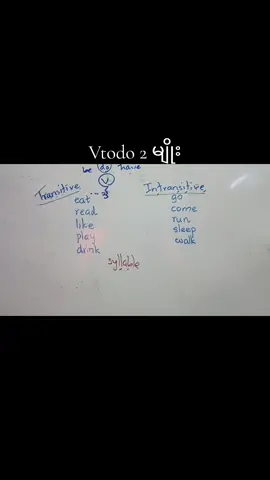 Vtodo 2 မျိုး
be do have
V
Transitive
Intransitive
eat
read
like
play
drink
go
come
run
sleep
walk
syllable